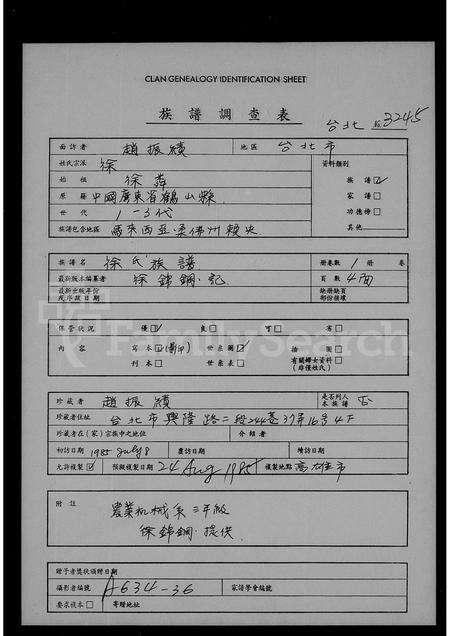 CLAN GENEALOGY IDENTIFICATION SHEET
族譜調查表
台北 3245
面訪者 趙振績 地區 台北市
姓氏宗派 徐 資料類別
始祖 徐 族譜☑
原籍 中國廣東省鶴山縣 家譜□
世代 1-3代 功德榜□
族譜包含地區 馬來西亞柔佛州 其他
族譜名 徐氏族譜 册卷數 1 册 卷
最新版本編纂者 徐錦鋼·記 頁數 4面
最新出版年份或序跋日期 缺册缺頁部份後補
保管狀況 優☑ 良□ 可□ 劣□
內容 寫本☑(影印) 世系圖☑ 插圖□
刊本□ 世系表□ 有關婦女資料(非僅姓氏)□
珍藏者 趙振績 是否列入本族譜 否
珍藏者住址 台北市興隆路二段244巷37弄16号4F
珍藏者在(家)宗族中之地位 介紹者
初訪日期 1985 July 8 覆訪日期 續訪日期
允許複製☑ 預擬複製日期 24 Aug 1985 複製地點 高雄市
附註 農業机械系三年級
徐錦鋼·提供
贈予者獎狀頒贈日期
攝影者編號 A634-36 家譜學會編號
要求複本□ 寄贈地址
FamilySearch